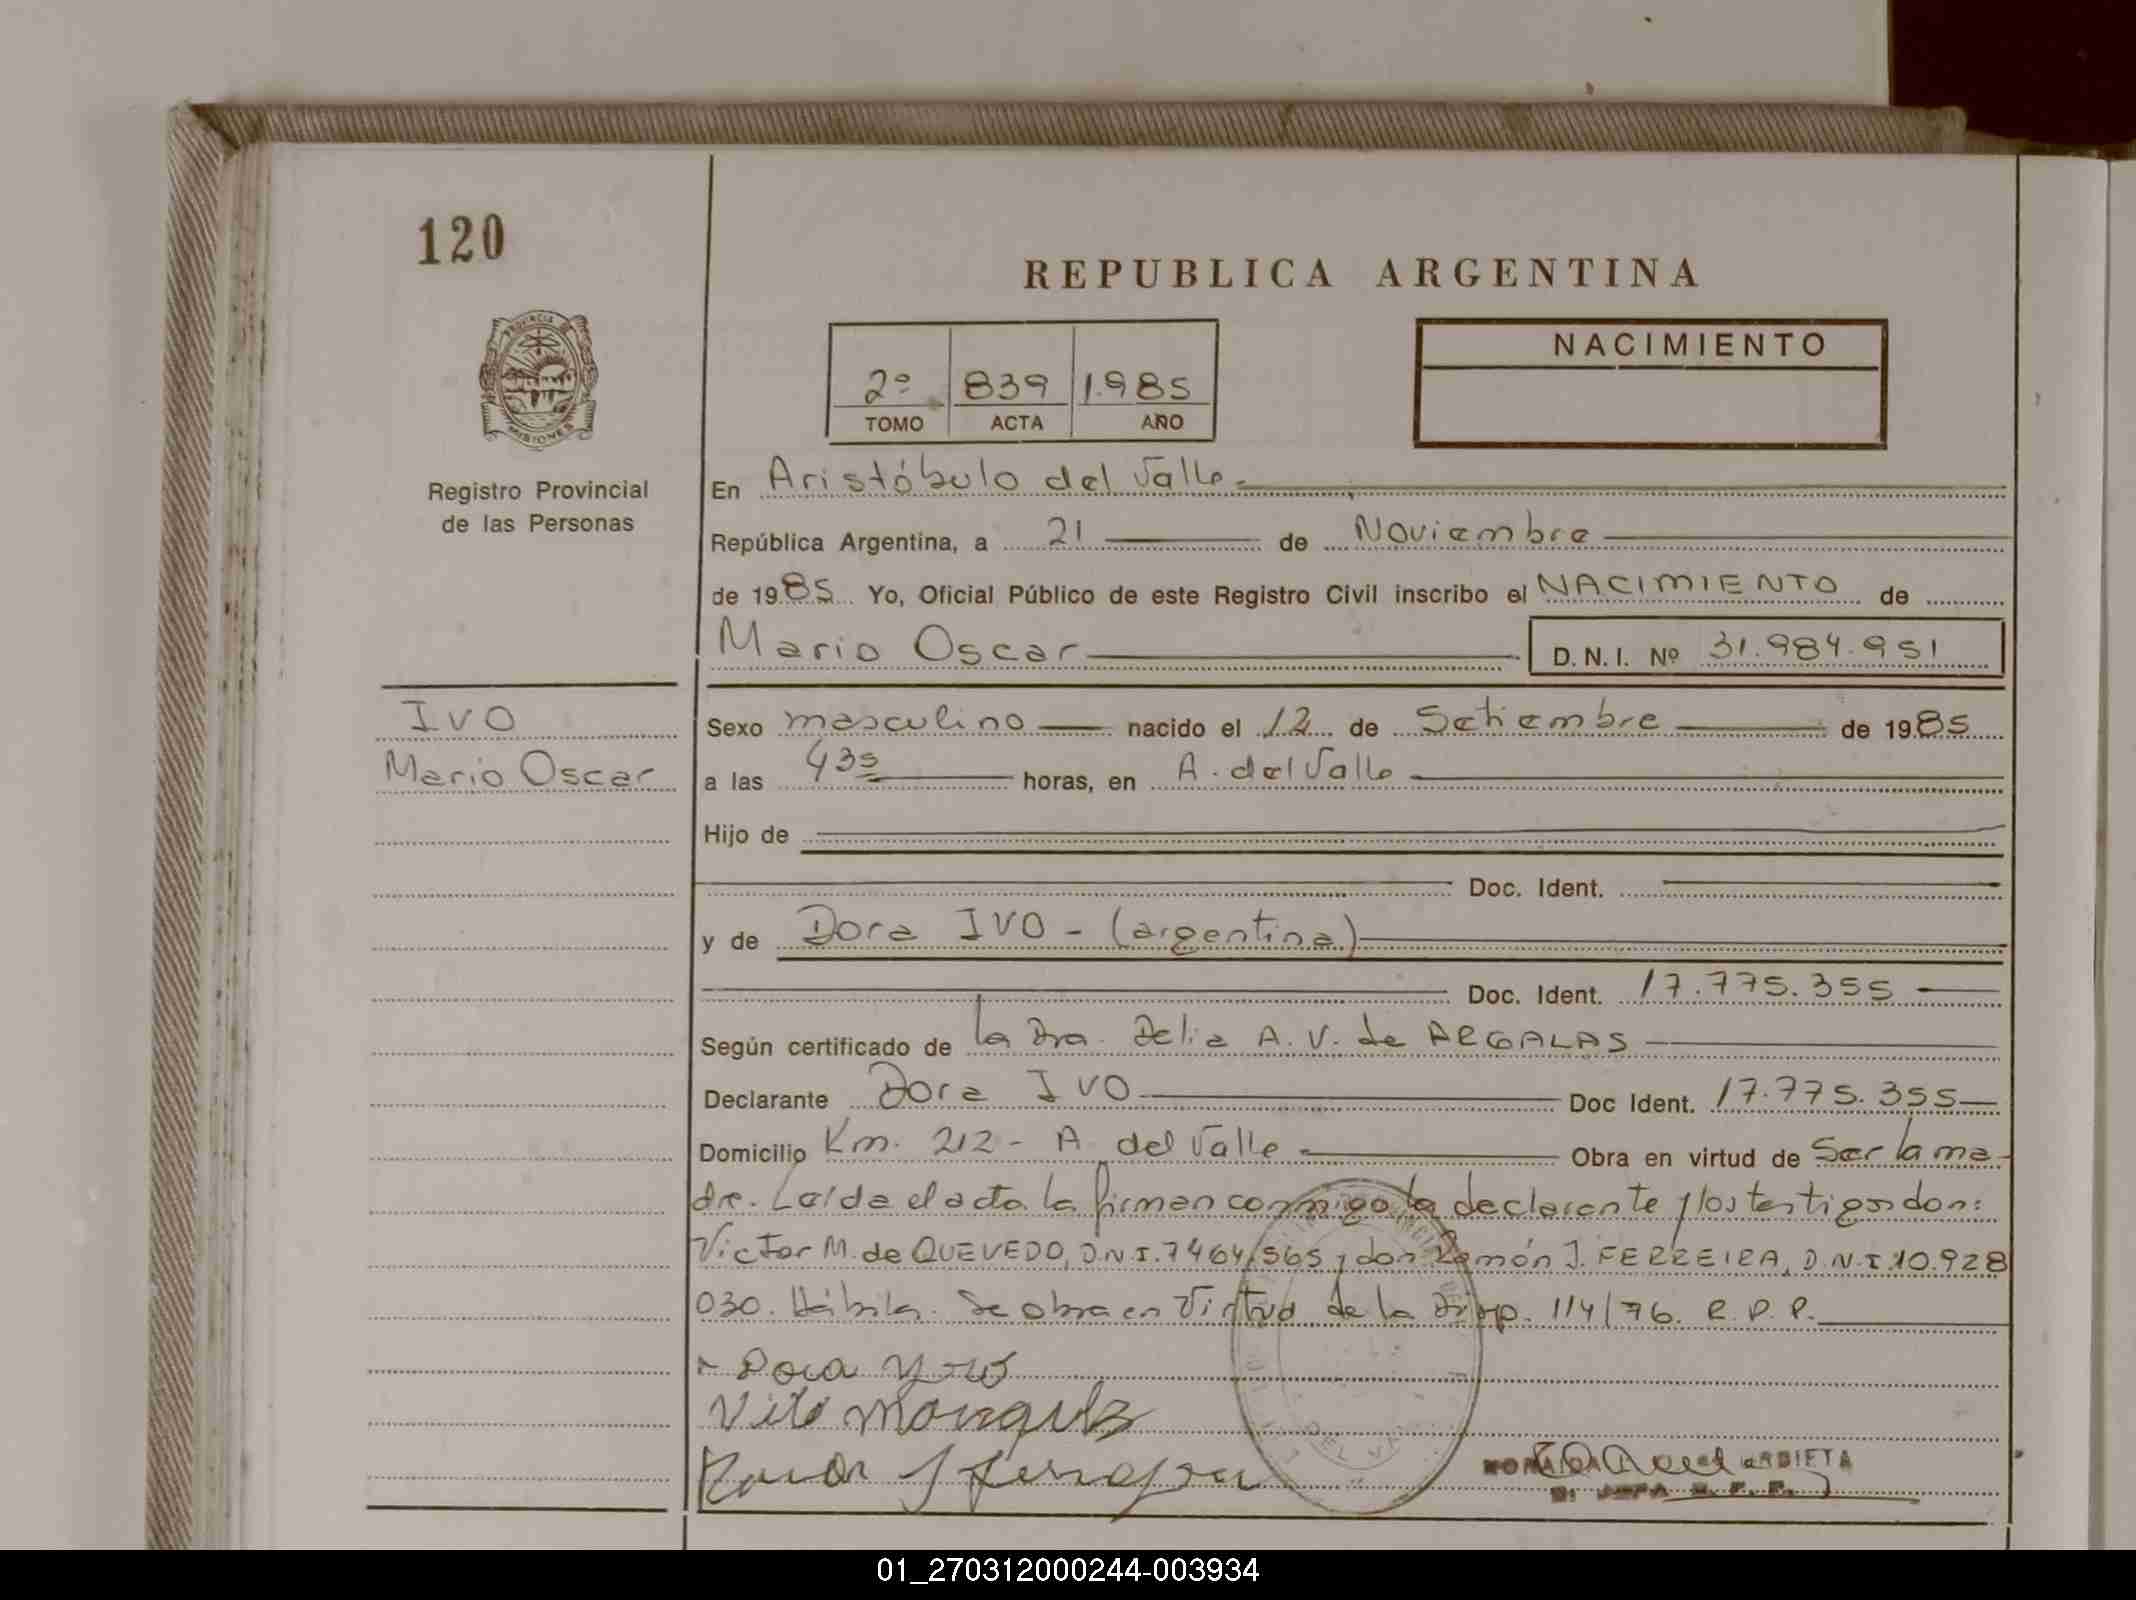 120
REPUBLICA ARGENTINA
PROVINCIA DE
MISIONES
Registro Provincial
de las Personas
2º 839 1.985
TOMO ACTA AÑO
NACIMIENTO
En Aristóbulo del Valle
República Argentina, a 21 de Noviembre
de 1985 Yo, Oficial Público de este Registro Civil inscribo el NACIMIENTO de
Mario Oscar D.N.I. Nº 31.984.951
IVO
Mario Oscar
Sexo masculino nacido el 12 de Setiembre de 1985
a las 435 horas, en A. del Valle
Hijo de
Doc. Ident.
y de Dora IVO - (argentina)
Doc. Ident. 17.775.355
Según certificado de la Dra. Delia A. V. de ARGALAS
Declarante Dora IVO Doc Ident. 17.775.355
Domicilio Km. 212 - A. del Valle Obra en virtud de Ser la ma-
dre. Leída el acta la firman conmigo la declarante y los testigos don:
Victor M. de QUEVEDO, D.N.I. 7464565 y don Ramón J. FERREIRA, D.N.I. 10.928
030. Hábiles. Se obra en Virtud de la Disp. 114/76. R.P.P.
Dora
Ramon J
ARDIETA
01_270312000244-003934